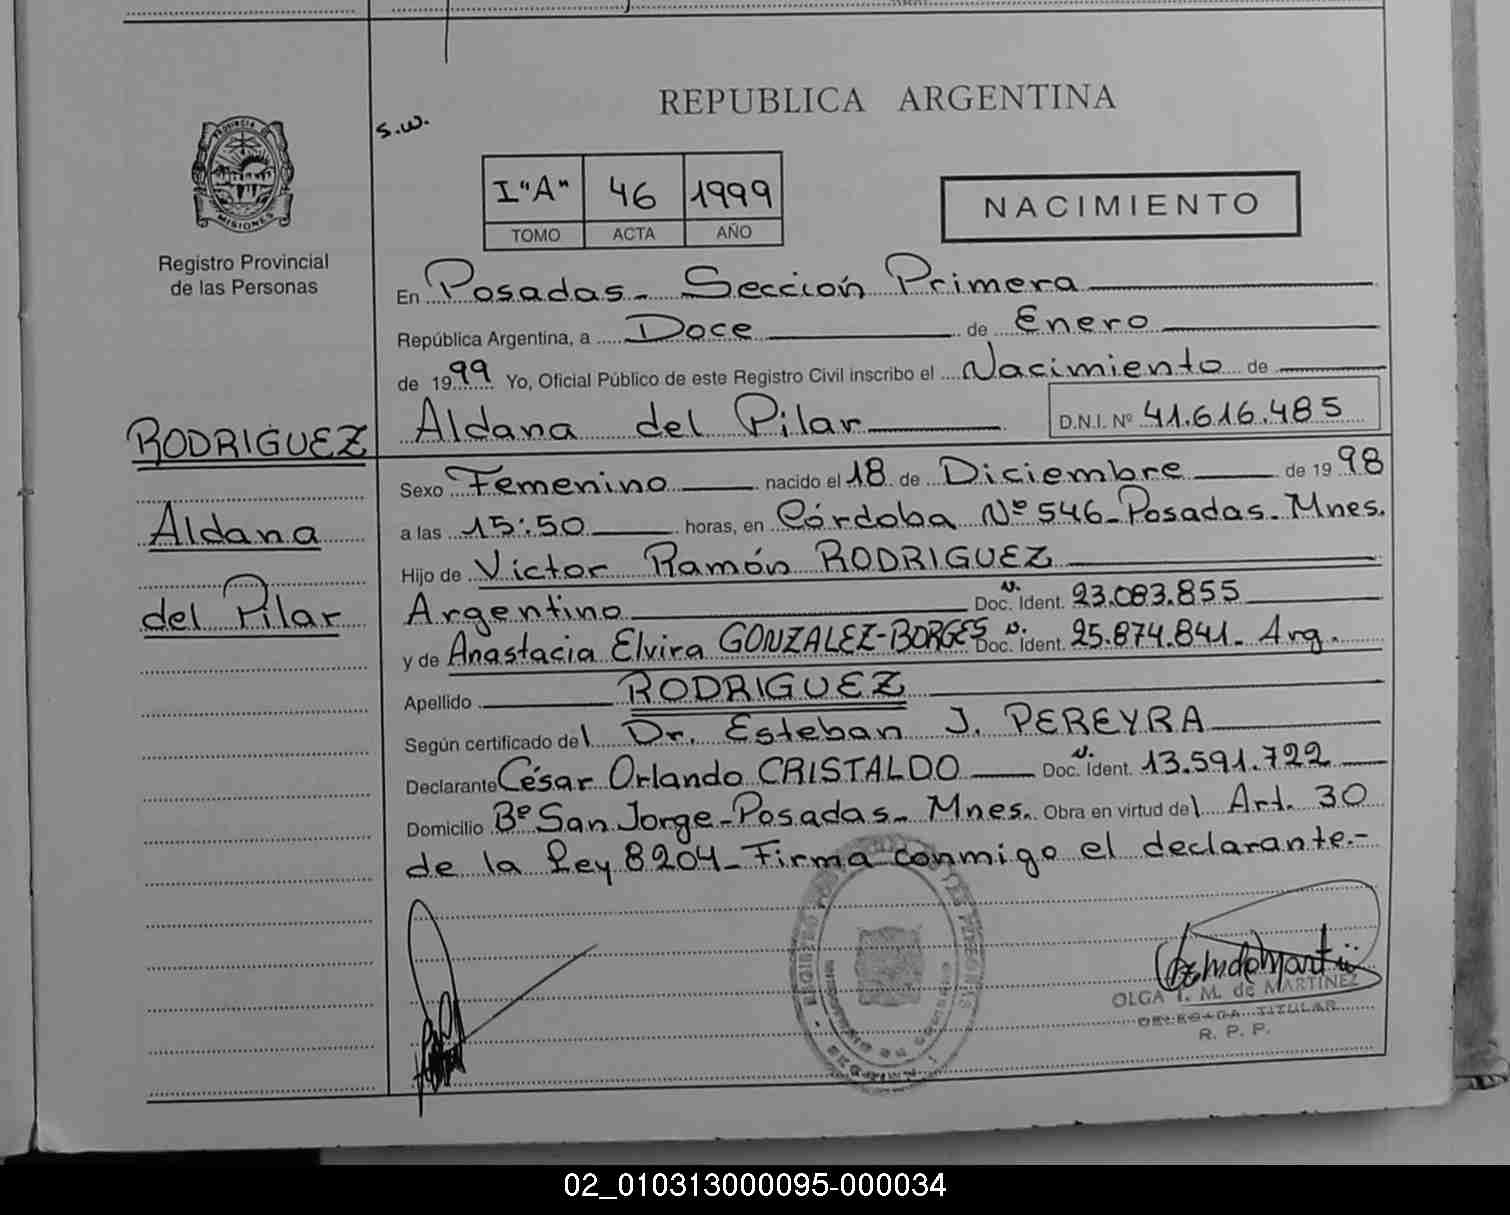 REPUBLICA ARGENTINA
s.w.
PROVINCIA DE
MISIONES
Registro Provincial
de las Personas
I "A" 46 1999
TOMO ACTA AÑO
NACIMIENTO
En Posadas - Sección Primera
República Argentina, a Doce de Enero
de 1999 Yo, Oficial Público de este Registro Civil inscribo el Nacimiento de
Aldana del Pilar D.N.I. Nº 41.616.485
RODRIGUEZ
Aldana
del Pilar
Sexo Femenino nacido el 18 de Diciembre de 1998
a las 15:50 horas, en Córdoba Nº 546 - Posadas - Mnes.
Hijo de Victor Ramón RODRIGUEZ
Argentino Doc. Ident. 23.083.855
y de Anastacia Elvira GONZALEZ-BORGES Doc. Ident. 25.874.841 - Arg.
Apellido RODRIGUEZ
Según certificado del Dr. Esteban J. PEREYRA
Declarante César Orlando CRISTALDO Doc. Ident. 13.591.722
Domicilio Bº San Jorge - Posadas - Mnes. Obra en virtud del Art. 30
de la Ley 8204 - Firma conmigo el declarante.-
OLGA I. M. de MARTINEZ
DELEGADA TITULAR
R. P. P.
02_010313000095-000034